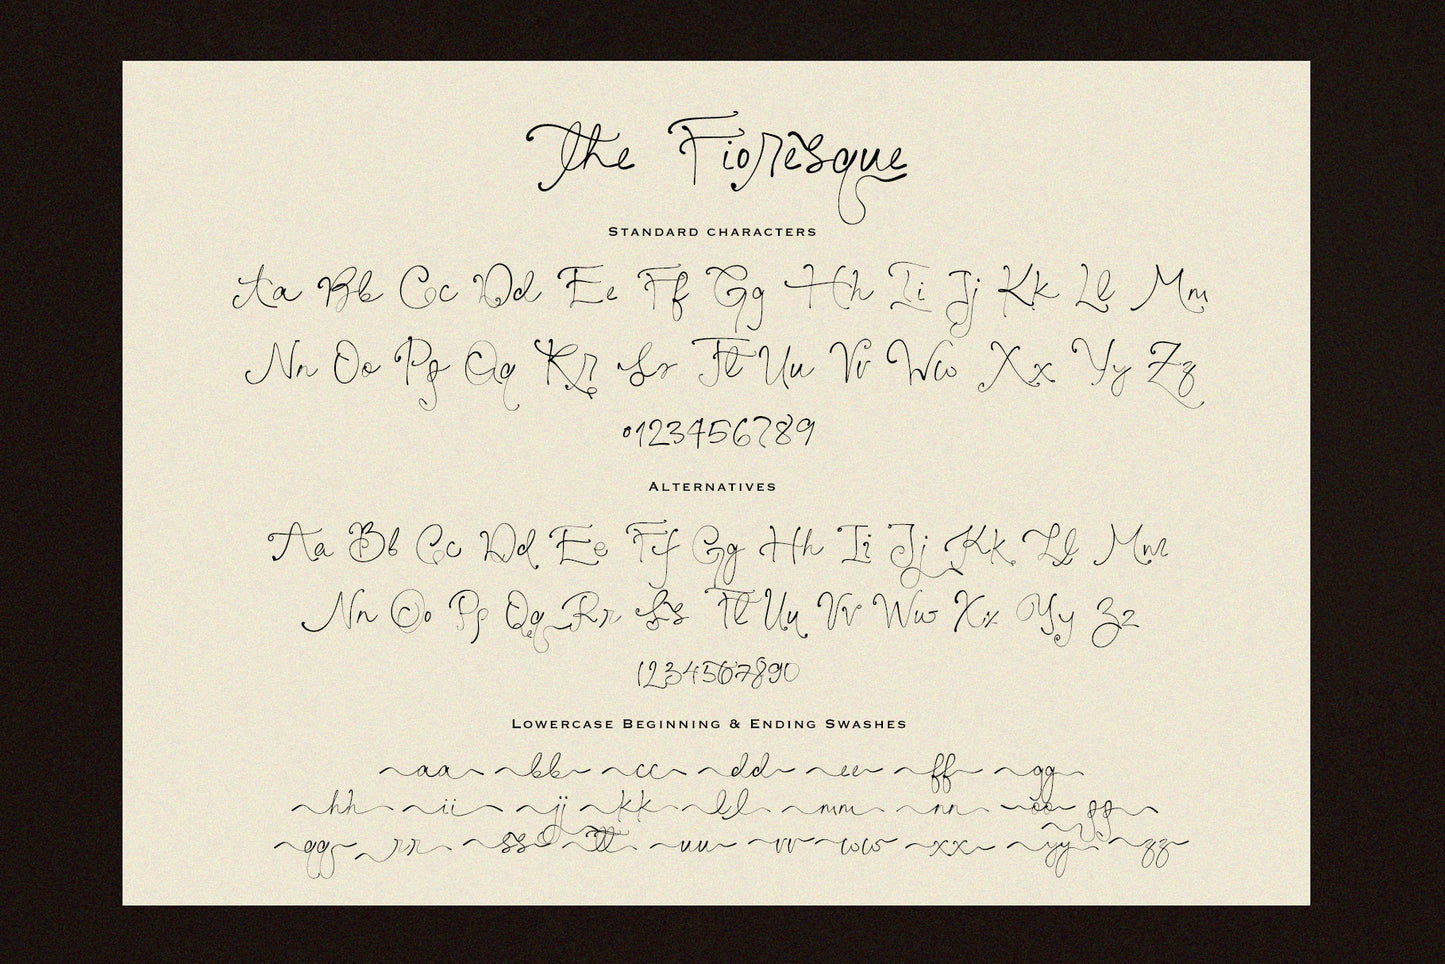 The Fioresque
STANDARD CHARACTERS
Aa Bb Cc Dd Ee Ff Gg Hh Ii Jj Kk Ll Mm
Nn Oo Pp Qq Rr Ss Tt Uu Vv Ww Xx Yy Zz
0123456789
ALTERNATIVES
Aa Bb Cc Dd Ee Ff Gg Hh Ii Jj Kk Ll Mm
Nn Oo Pp Qq Rr Ss Tt Uu Vv Ww Xx Yy Zz
1234567890
LOWERCASE BEGINNING & ENDING SWASHES
aa bb cc dd ee ff gg
hh ii jj kk ll mm nn oo pp
qq rr ss tt uu vv ww xx yy zz